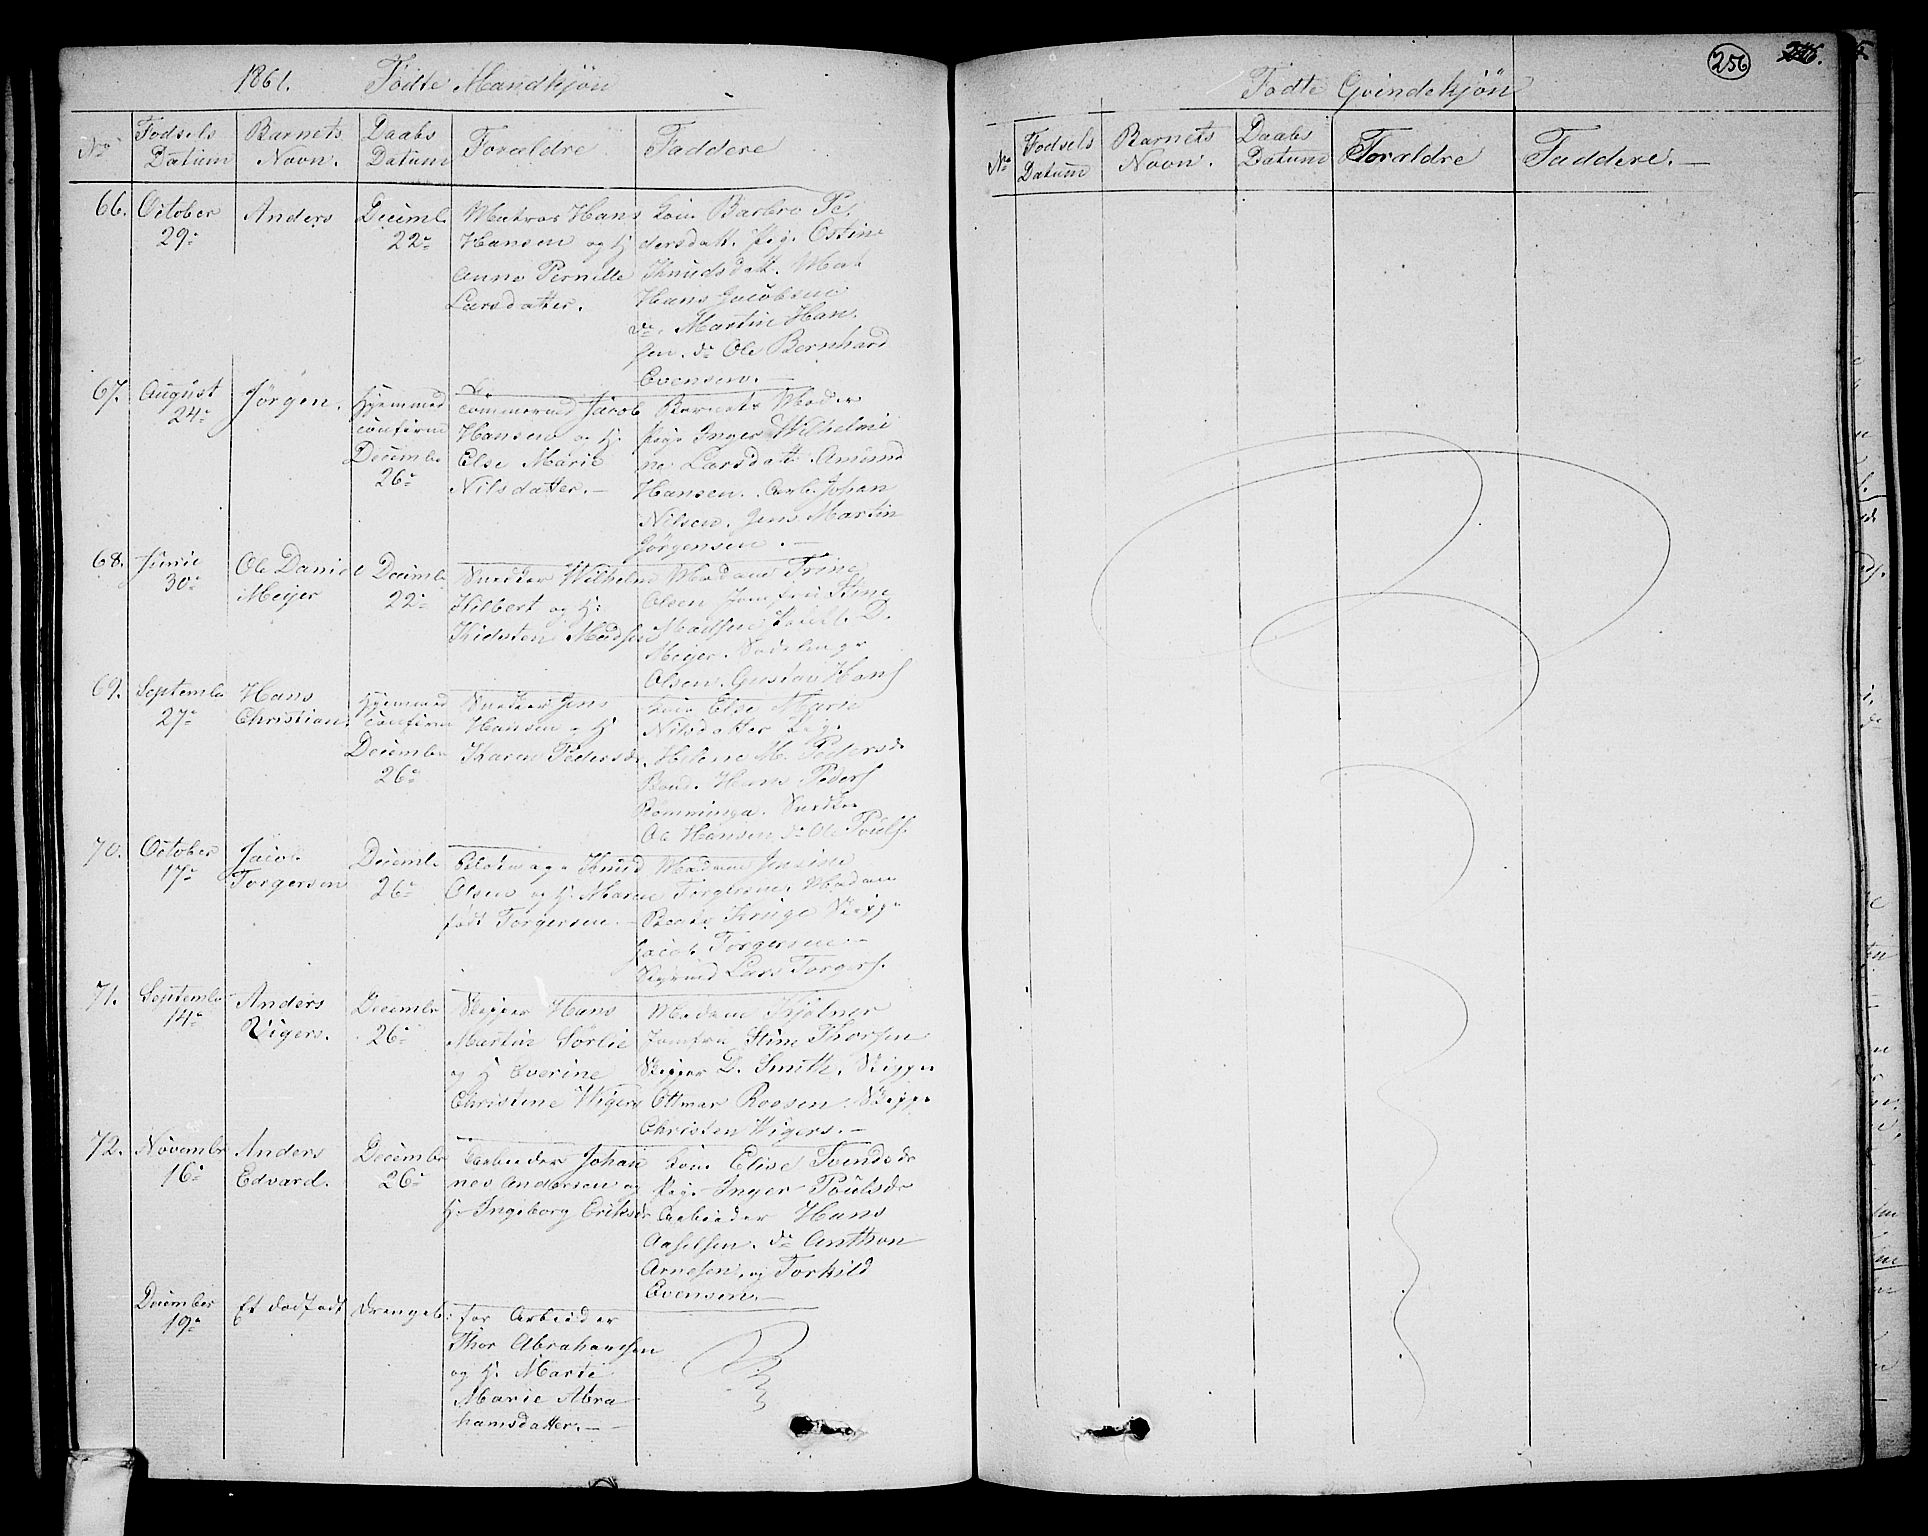 1861. Fødte Mandkjøn
No
Fødsels Datum
Barnets Navn.
Daabs Datum
Forældre
Faddere
66.
October 29de
Anders
Decembr 22de
Matros Hans
Hansen og H
Anne Pernille
Larsdatter.
Kone Barbro Pe
dersdatt. Pige Ostine
Knudsdatt. Mat
Hans Jacobsen
do. Martin Han
sen. do Ole Bernhard
Evensen.
67.
August 24de
Jørgen.
Hjemmed
confirm
Decembr 26de
Tømmermd Jacob
Hansen og H.
Else Marie
Nilsdatter. –
Barnets Moder
Pige Inger Wilhelmi
ne Larsdatt. Amund
Hansen. Arb. Johan
Nilsen. Jens Martin
Jørgensen. –
68.
Junie 30de
Ole Daniel
Meijer
Decembr 22de
Snedker Wilhelm
Hilbert og H:
Kirsten Madsen
Madame Trine
Olsen Jomfru Stine
Madsen D.
Meijer.
Olsen. Gustav Hans
69.
Septembr 27de
Hans
Christian.
Hjemmed
confirm
Decembr 26de
Snedker Jens
Hansen og H
Karen Pedersd.
Kone Else Marn
Nilsdatter Pige
Helene M. Pedersd.
Hans Peders
Romminga. Snedker
Ole Hansen, do Ole Pouls.
70.
October 17de
Jacob
Torgersen
Decembr 26de
Knud
Olsen og H. Maren
født Torgersen. –
Madame Jensine
Torgersen Madam
Kruge Skipp
Jacob Torgersen –
Lars Torgers.
71.
Septembr 14de
Anders
Vigers.
Decembr 26de
Skipper Hans
Martin Sørlie
og H Everine
Christine Wigers
Madam Kjølner
Jomfru Stine Thorsen
Skipper D. Smith, Skipper
Ottmar Roosen. Skipp
Christen Wigers. –
72.
Novembr 16de
Anders
Edvard.
Decembr 26de
Arbeider Johan
nes Andersen og
H. Ingeborg Eriksdr
Kone Elise Svendsdr
Pige Inger Poulsdr
Arbeider Hans
Aslesen. do Anthon
Arnesen, og Torkild
Evensen. –
December 19de
Et dødfødt Drengeb.
for Arbeider
Thor Abrahamsen
og H. Marte
Marie Abra
hamsdatter. –
256
246.
Fødte Qvindekjøn
No
Fødsels Datum
Barnets Navn.
Daabs Datum
Forældre
Faddere. –